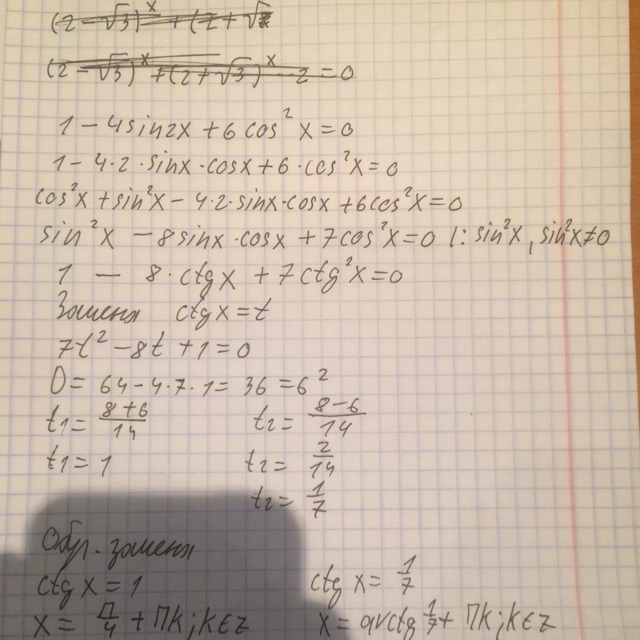 (2 - √3)^x + (2 + √3
(2 - √3)^x + (2 + √3)^x - 2 = 0
1 - 4sin2x + 6cos²x = 0
1 - 4·2·sinx·cosx + 6·cos²x = 0
cos²x + sin²x - 4·2·sinx·cosx + 6cos²x = 0
sin²x - 8sinx·cosx + 7cos²x = 0 |: sin²x, sin²x ≠ 0
1 - 8·ctgx + 7ctg²x = 0
Замена ctgx = t
7t² - 8t + 1 = 0
D = 64 - 4·7·1 = 36 = 6²
t₁ = (8+6)/14 t₂ = (8-6)/14
t₁ = 1 t₂ = 2/14
t₂ = 1/7
Обр. замена
ctgx = 1 ctgx = 1/7
x = П/4 + Пk; k∈Z x = arcctg 1/7 + Пk; k∈Z